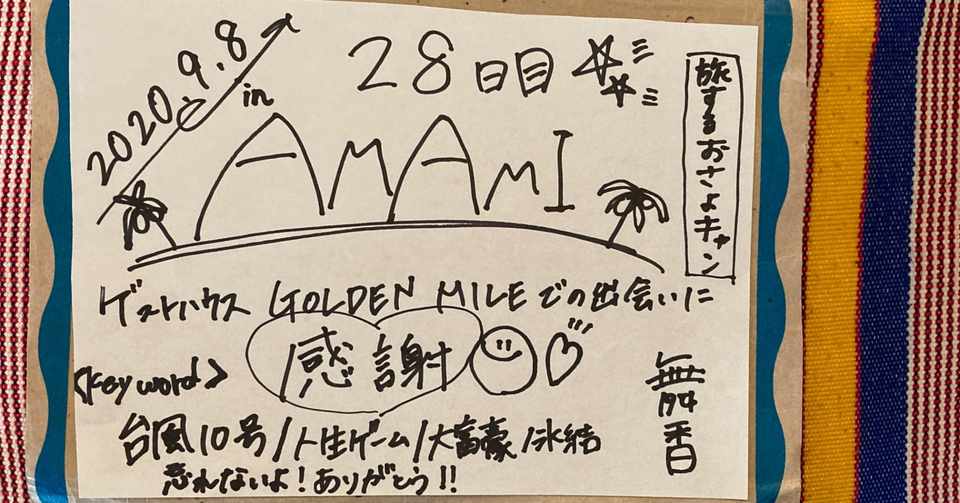 2020.9.8
in
28日目
AMAMI
旅するおさよキャン
ゲストハウス GOLDEN MILEでの出会いに
感謝
<key word>
台風10号/人生ゲーム/大富豪/氷結
忘れないよ!ありがとう!!